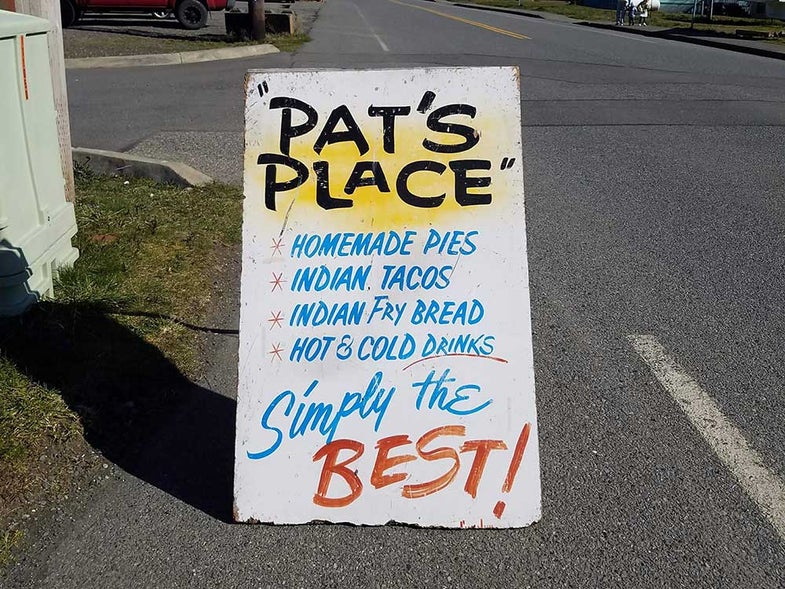 "PAT'S
PLACE"
* HOMEMADE PIES
* INDIAN TACOS
* INDIAN FRY BREAD
* HOT & COLD DRINKS
Simply the
BEST!